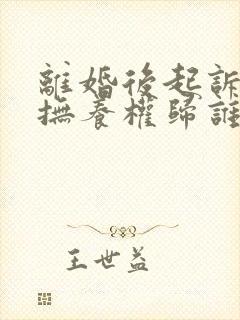 離婚後起訴
撫養權歸誰
王世益